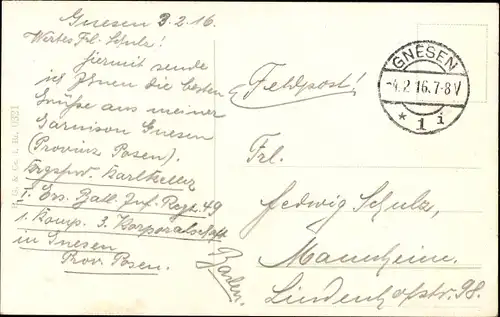 Gnesen 3.2.16.
Wertes Frl. Schulz!
Hiermit sende
ich Ihnen die besten
Grüße aus meiner
Garnison Gnesen
(Provinz Posen).
Karl Keller
I. Ers. Batl. Inf. Regt. 49
1. Komp. 3. Korporalschaft
in Gnesen
Prov. Posen.
Feldpost!
GNESEN
-4.2.16.7-8V
* 1 i
Frl.
Hedwig Schulz,
Mannheim.
Lindenhofstr. 98.
Baden.